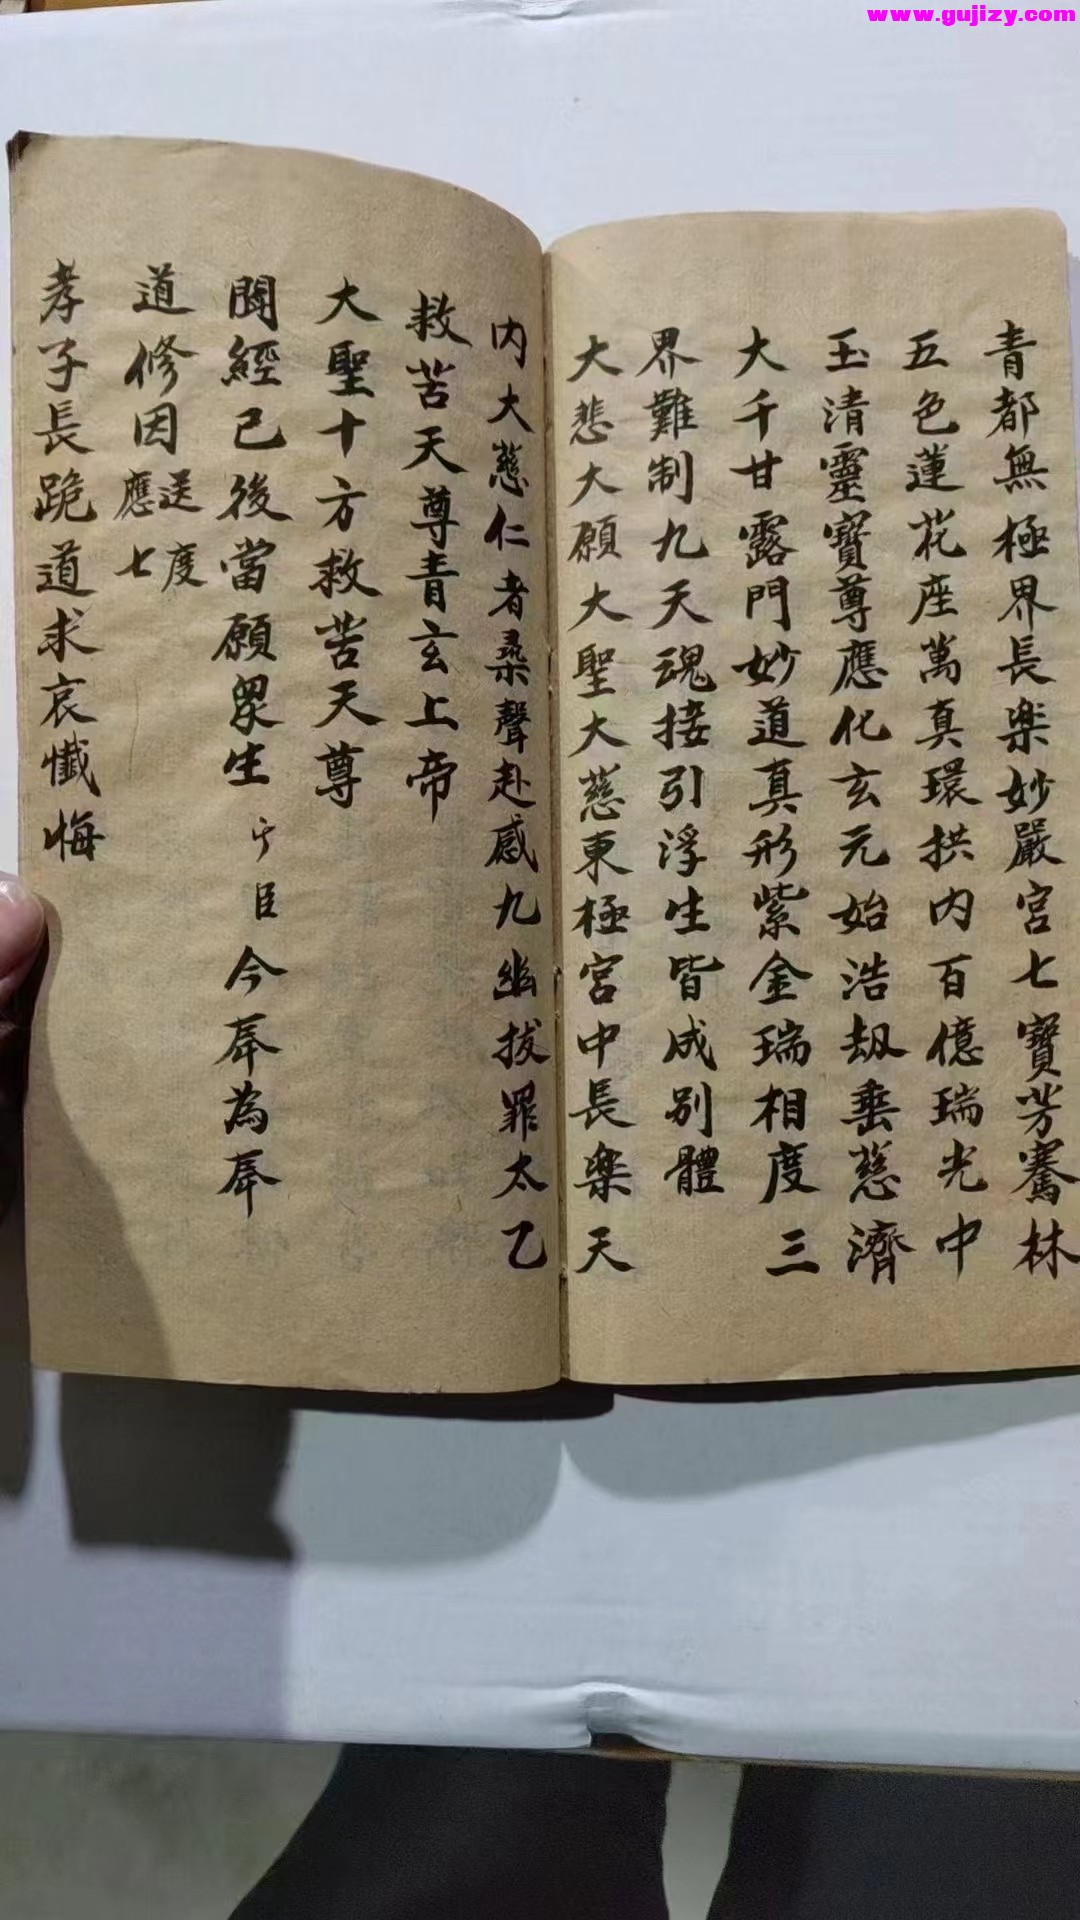 www.gujizy.com
青都無極界長楽妙嚴宮七寶芳騫林
五色蓮花座萬真環拱内百億瑞光中
玉清靈寶尊應化玄元始浩劫垂慈濟
大千甘露門妙道真形紫金瑞相度三
界難制九天魂接引浮生皆成別體
大悲大願大聖大慈東極宮中長楽天
内大慈仁者尋聲赴感九幽拔罪太乙
救苦天尊青玄上帝
大聖十方救苦天尊
聞經已後當願眾生 臣今奉為奉
道修因應七送度
孝子長跪道求哀懺悔